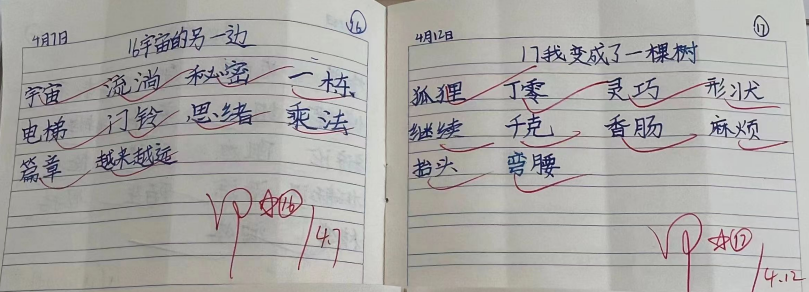 4月7日
⑯
16宇宙的另一边
宇宙 流淌 秘密 一栋
电梯 门铃 思绪 乘法
篇章 越来越远
☆⑯
4.7
4月12日
⑰
17我变成了一棵树
狐狸 丁零 灵巧 形状
继续 千克 香肠 麻烦
抬头 弯腰
☆⑰
4.12